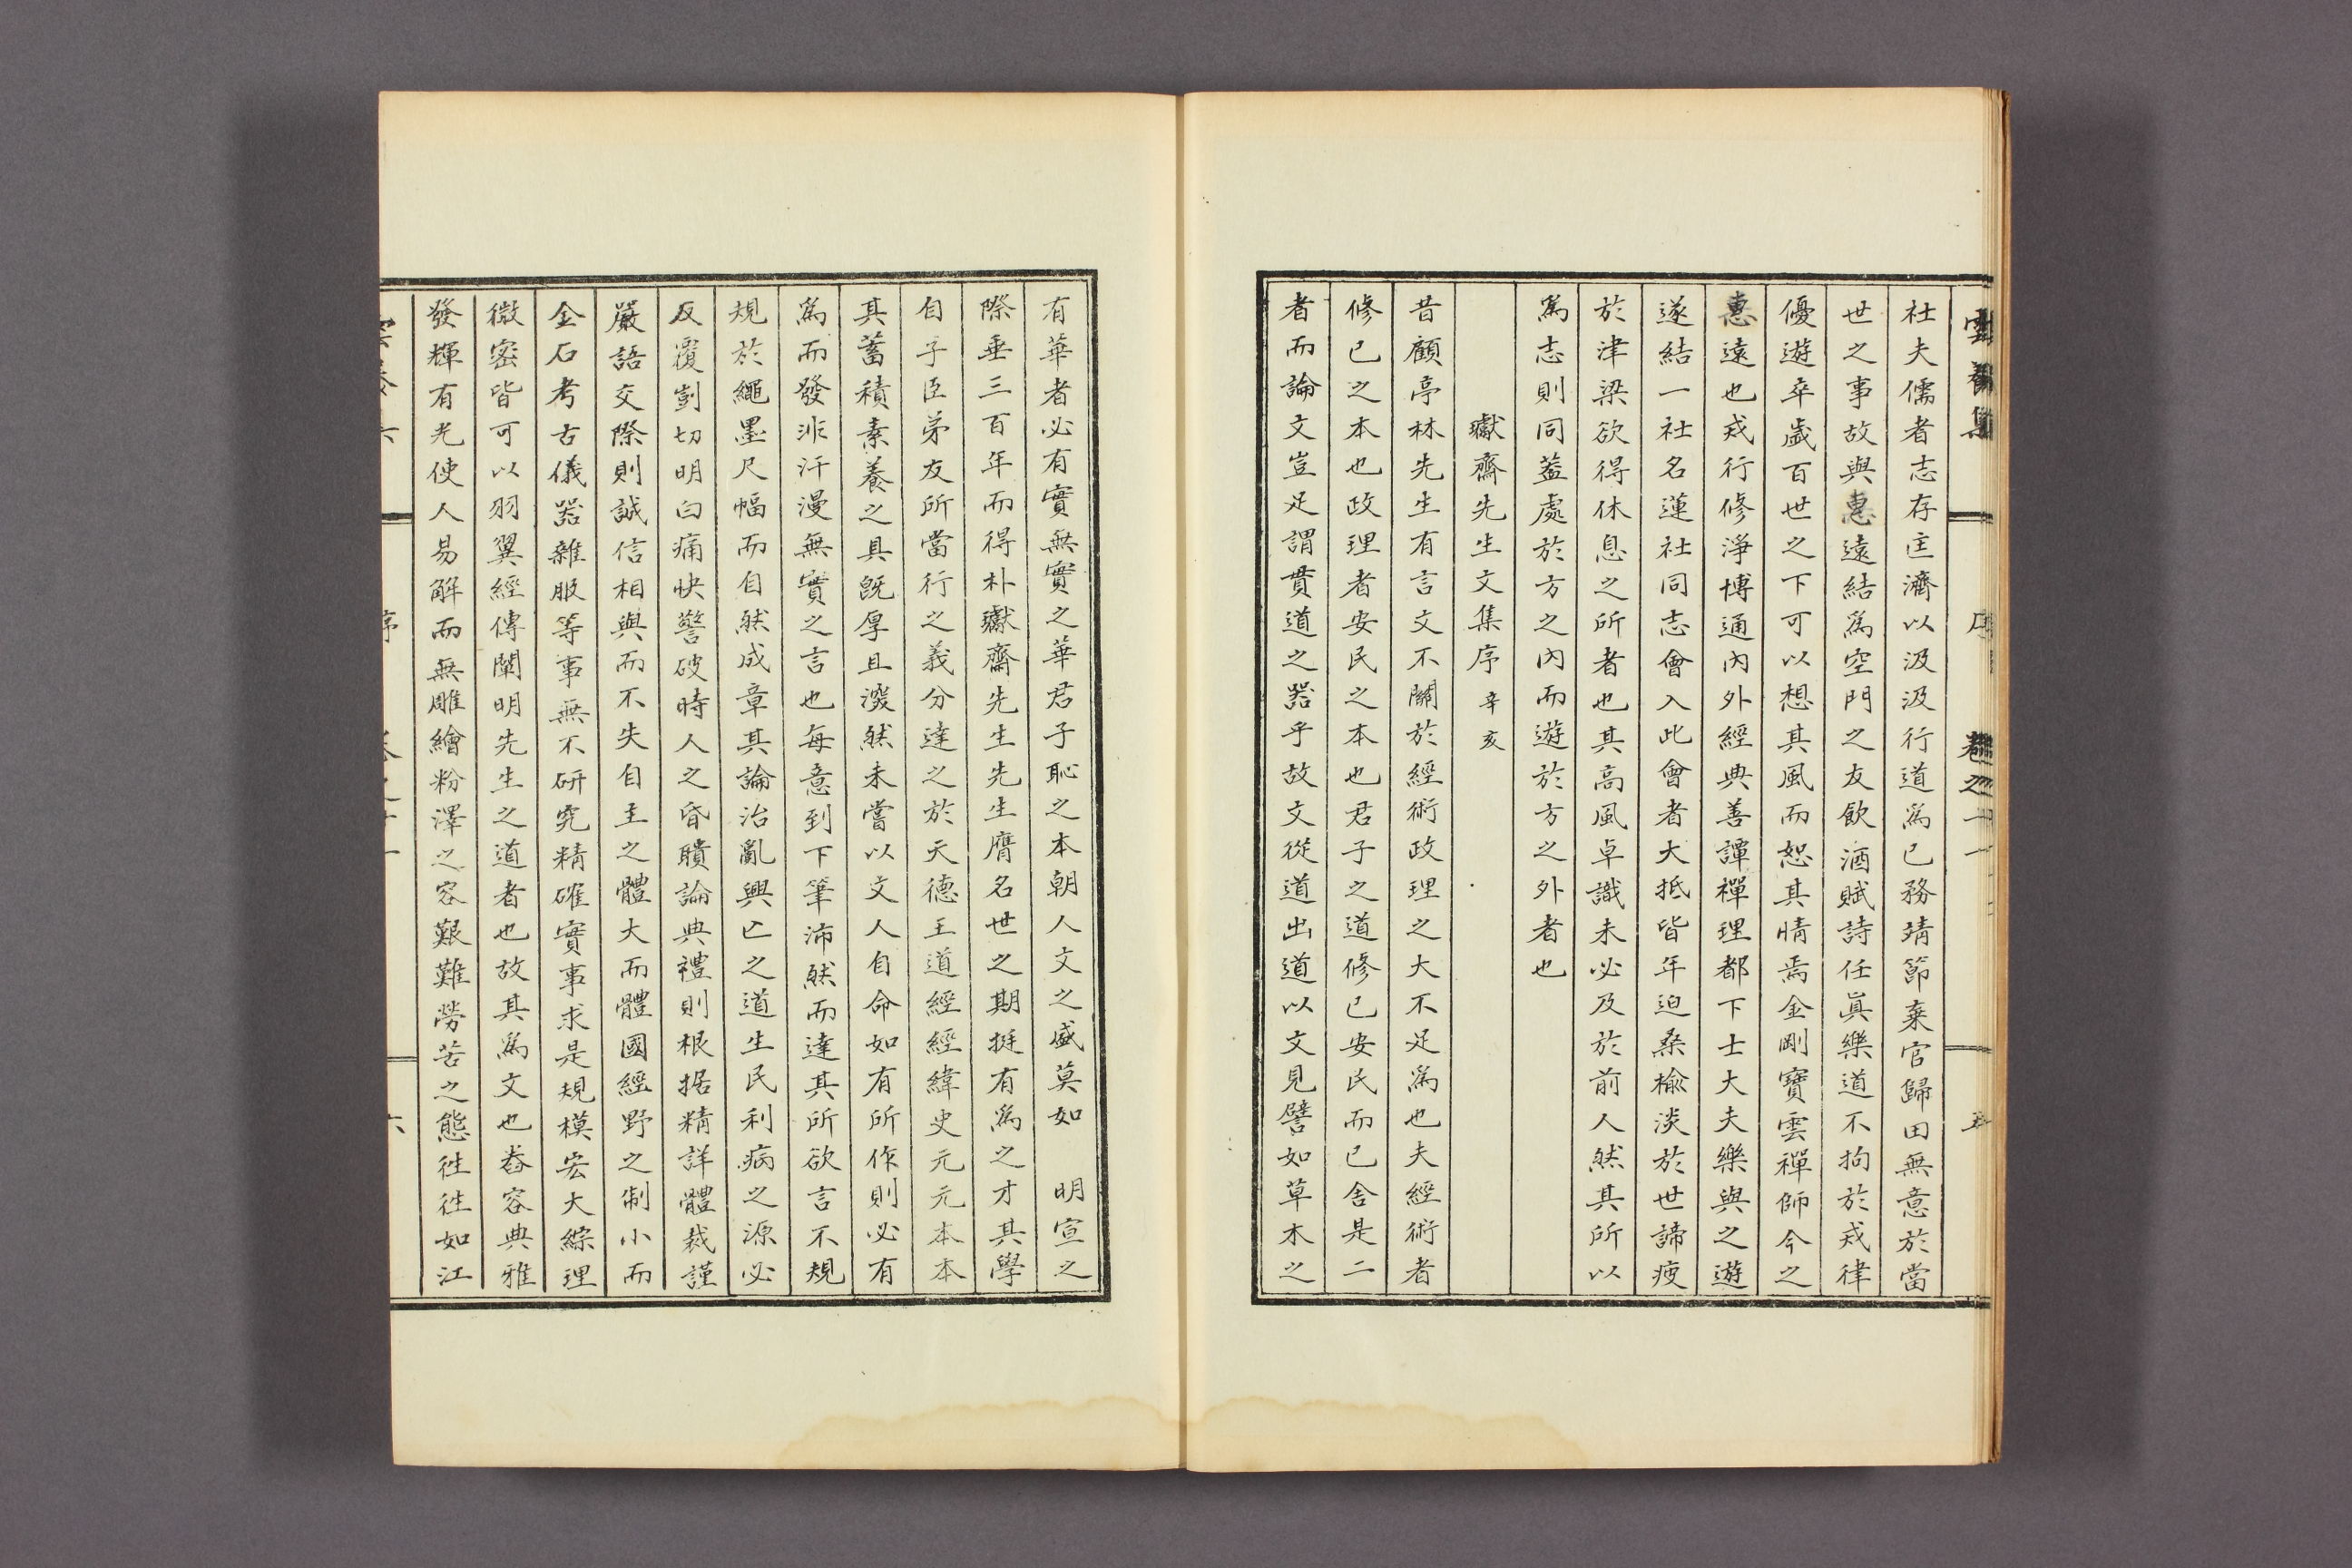 雲養集 序 卷之十一 五
社夫儒者志存匡濟以汲汲行道爲己務靖節棄官歸田無意於當
世之事故與惠遠結爲空門之友飮酒賦詩任眞樂道不拘於戒律
優遊卒歲百世之下可以想其風而恕其情焉金剛寶雲禪師今之
惠遠也戒行修淨博通內外經典善譚禪理都下士大夫樂與之遊
遂結一社名蓮社同志會入此會者大抵皆年迫桑楡淡於世諦疲
於津梁欲得休息之所者也其高風卓識未必及於前人然其所以
爲志則同蓋處於方之內而遊於方之外者也
瓛齋先生文集序 辛亥
昔顧亭林先生有言文不關於經術政理之大不足爲也夫經術者
修己之本也政理者安民之本也君子之道修己安民而已舍是二
者而論文豈足謂貫道之器乎故文從道出道以文見譬如草木之
有華者必有實無實之華君子恥之本朝人文之盛莫如 明宣之
際垂三百年而得朴瓛齋先生先生膺名世之期挺有爲之才其學
自子臣弟友所當行之義分達之於天德王道經經緯史元元本本
其蓄積素養之具旣厚且深然未嘗以文人自命如有所作則必有
爲而發非汗漫無實之言也每意到下筆沛然而達其所欲言不規
規於繩墨尺幅而自然成章其論治亂興亡之道生民利病之源必
反覆剴切明白痛快警破時人之昏聵論典禮則根据精詳體裁謹
嚴語交際則誠信相與而不失自主之體大而體國經野之制小而
金石考古儀器雜服等事無不硏究精確實事求是規模宏大綜理
微密皆可以羽翼經傳闡明先生之道者也故其爲文也舂容典雅
發輝有光使人易解而無雕繪粉澤之容艱難勞苦之態往往如江
六